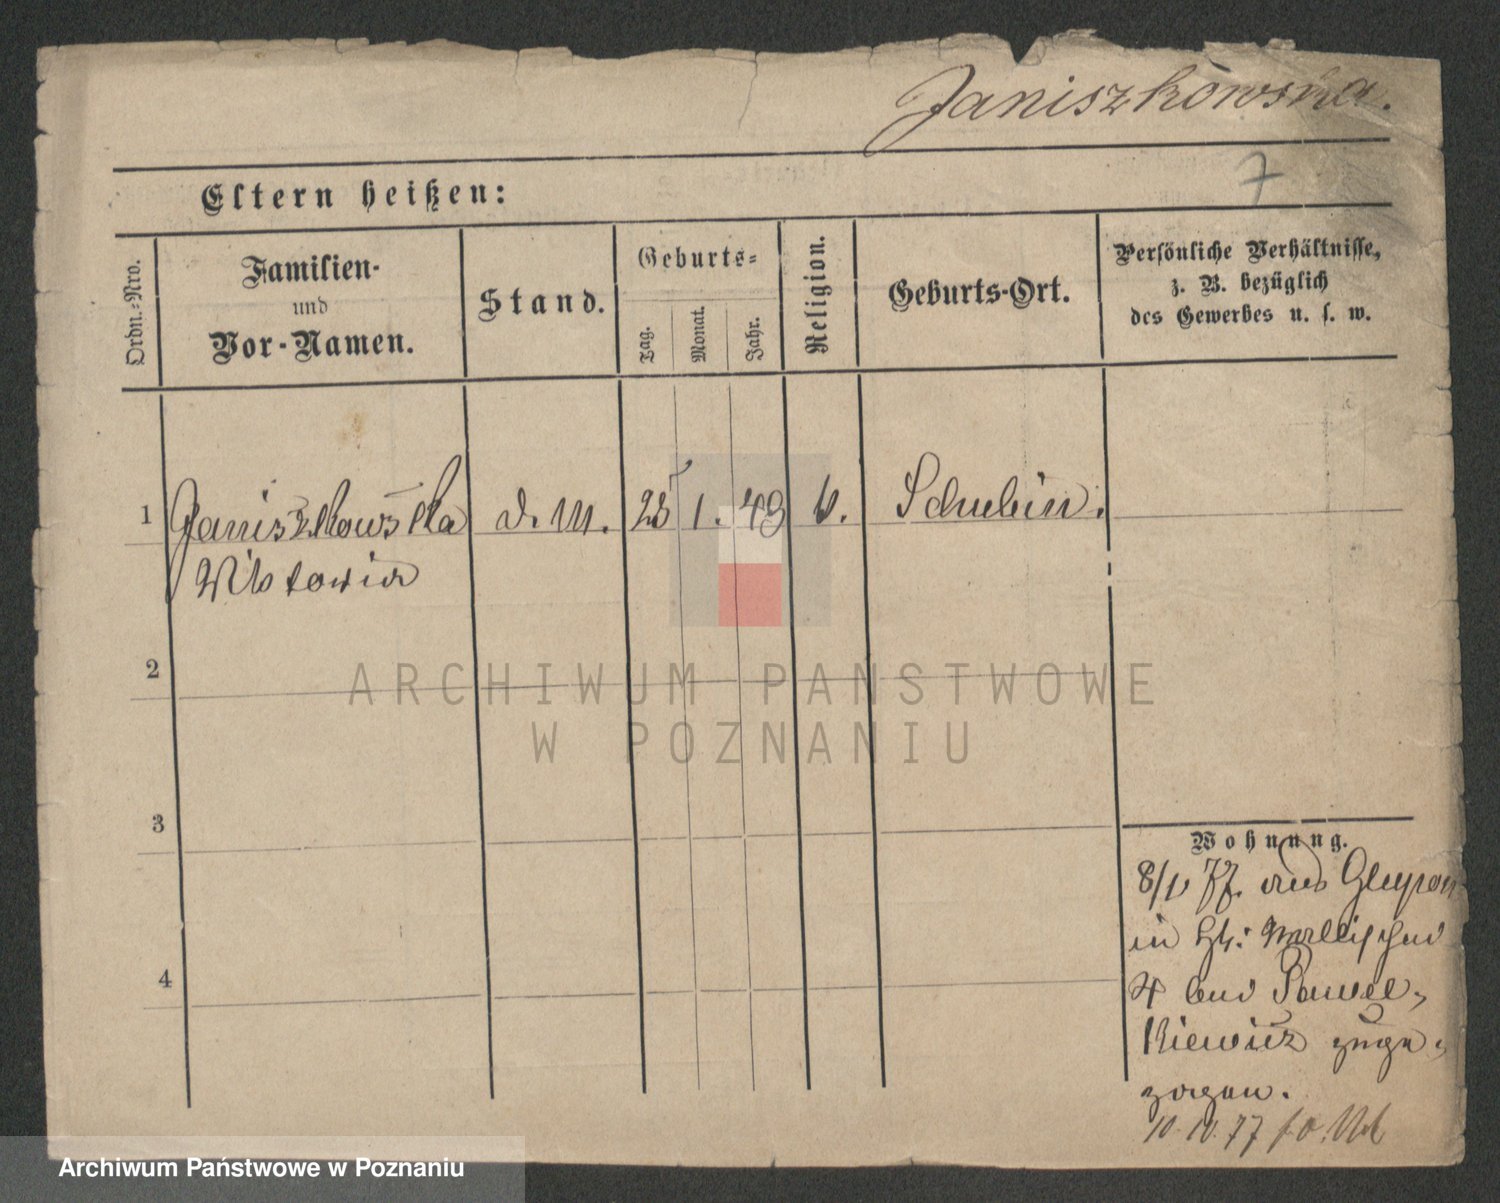 Janiszkowska.
7
Eltern heißen:
Ordn.-Nro.
Familien-
und
Vor-Namen.
Stand.
Geburts-
Tag.
Monat.
Jahr.
Religion.
Geburts-Ort.
Persönliche Verhältnisse,
z. B. bezüglich
des Gewerbes u. s. w.
1 Janiszkowska d. M. 25 1. 49 k. Schubin.
Wiktoria
2
3
4
Wohnung.
77. aus
in
4 bei Pawel-
kiewicz zuge-
zogen.
10. 10. 77
ARCHIWUM PAŃSTWOWE
W POZNANIU
Archiwum Państwowe w Poznaniu